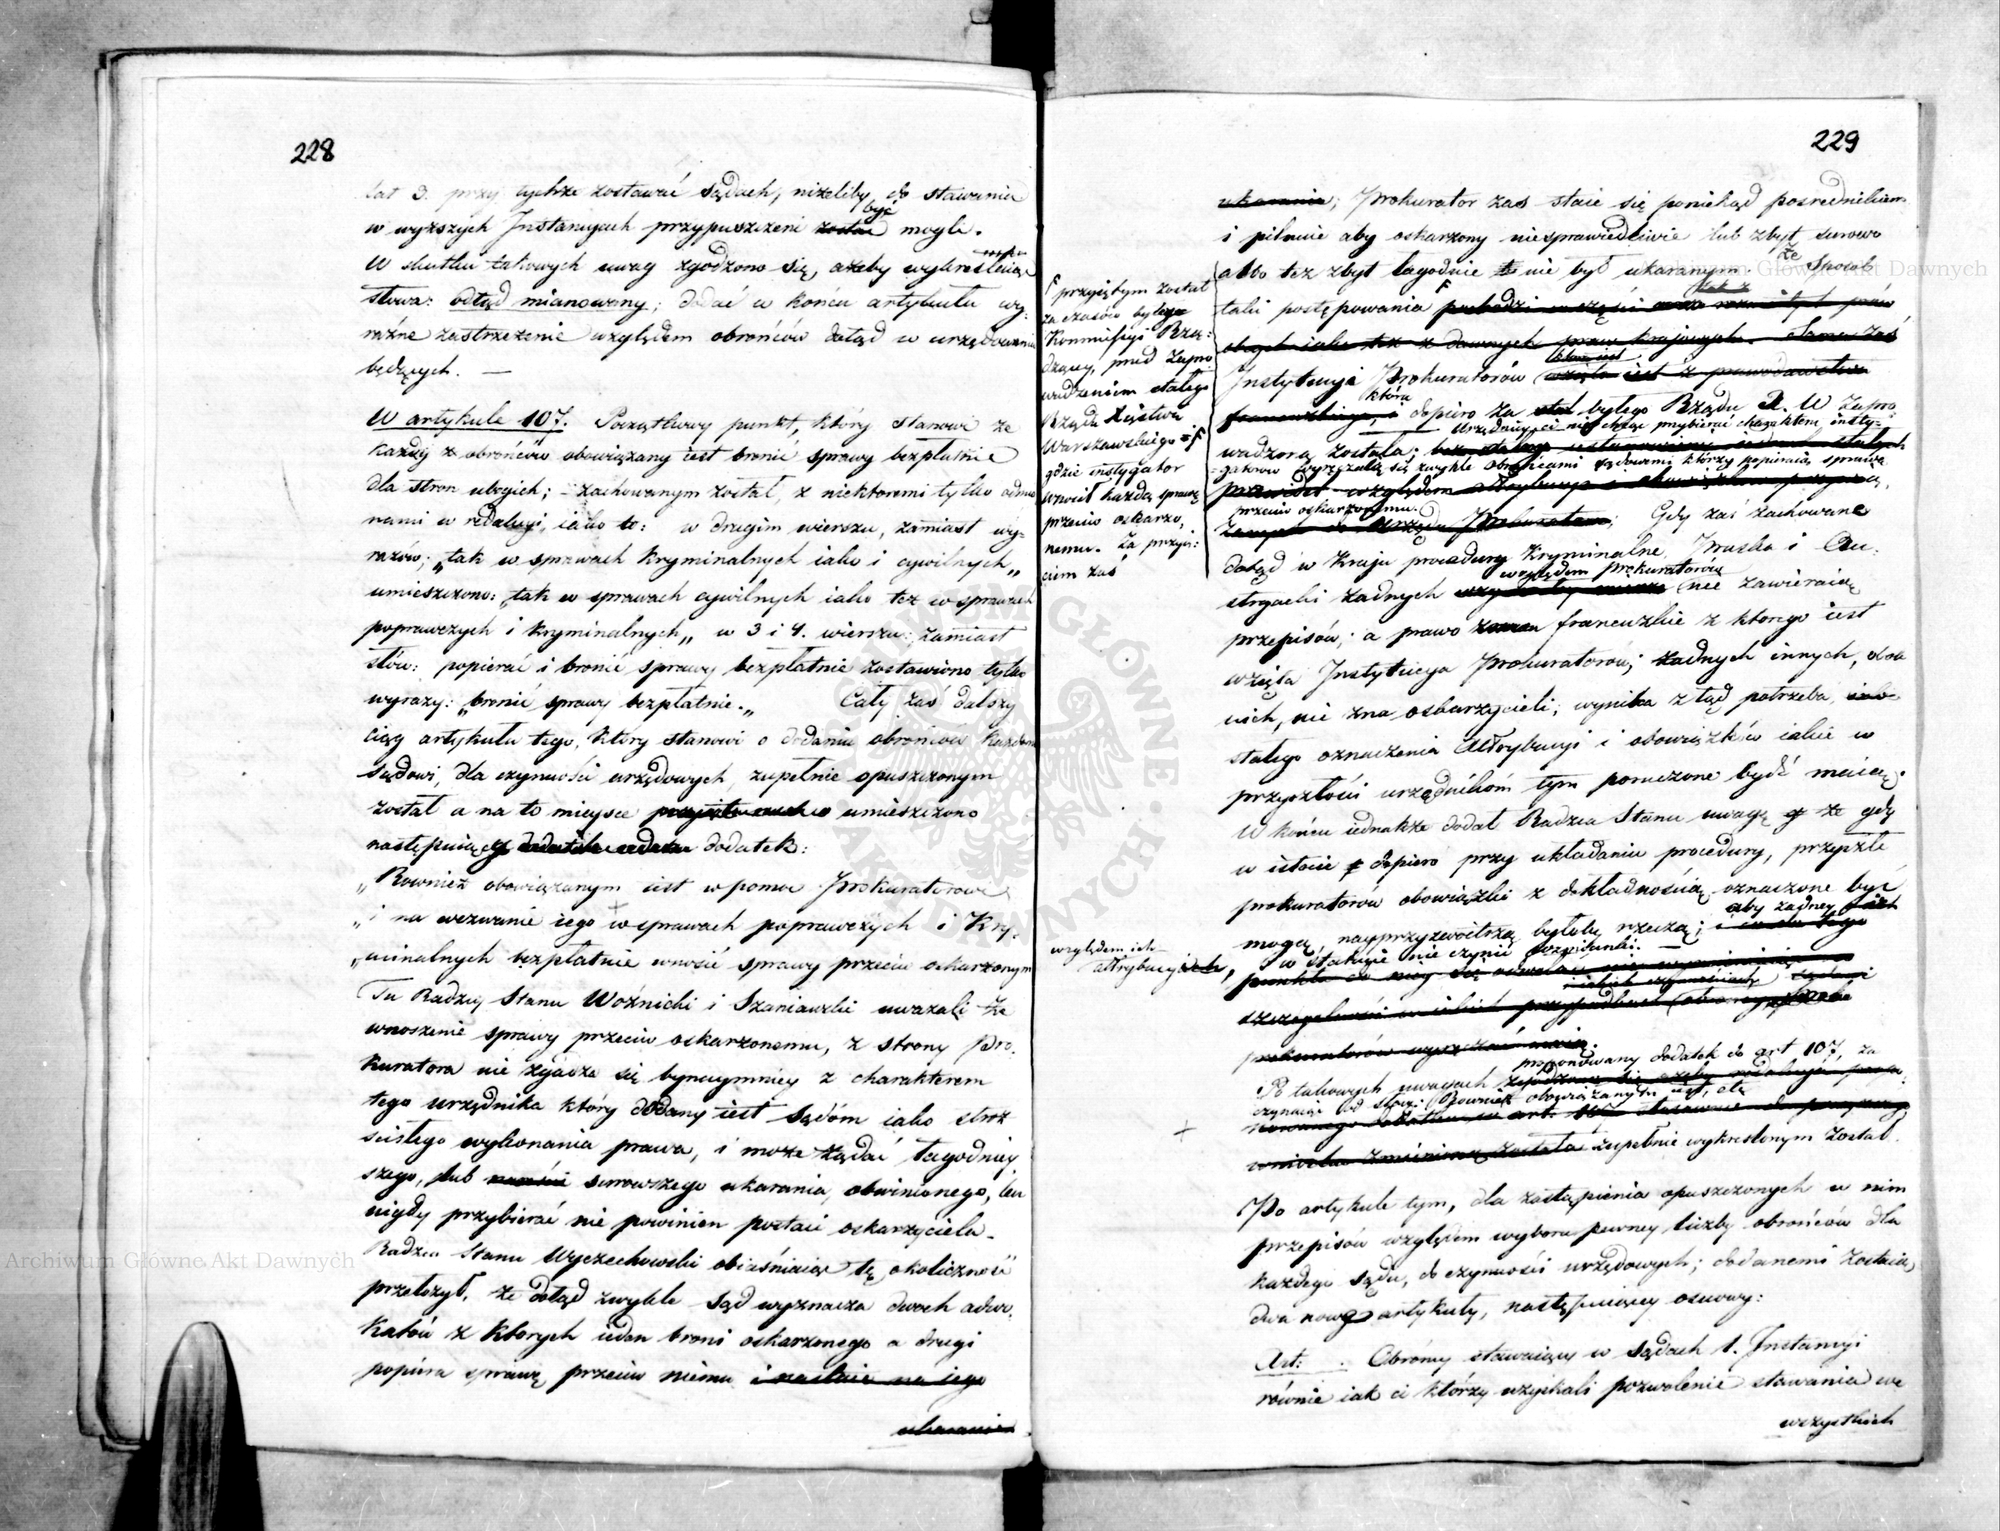 228
lat 3. przy tychże zostawać sądach, niżeliby do stawania
w wyższych Instancyach przypuszczeni być mogli.
W skutku takowych uwag zgodzono się, ażeby wykreślając
słowa: odtąd mianowany; dodać w końcu artykułu wy-
raźne zastrzeżenie względem obrońców dotąd w urzędowaniu
będących. —
W artykule 107. Początkowy punkt, który stanowi że
każdy z obrońców obowiązany iest bronić sprawy bezpłatnie
dla stron ubogich; zachowanym został, z niektoremi tylko odmia
nami w redakcyi, iako to: w drugim wierszu, zamiast wy-
razów; „tak w sprawach kryminalnych iako i cywilnych„
umieszczono: „tak w sprawach cywilnych iako też w sprawach
poprawczych i kryminalnych„ w 3 i 4. wierszu: zamiast
słów: popierać i bronić sprawy bezpłatnie zostawiono tylko
wyrazy: „bronić sprawy bezpłatnie.„ Cały zaś dalszy
ciąg artykułu tego, który stanowi o dodaniu obrońców każdemu
sądowi, dla czynności urzędowych, zupełnie opuszczonym
został a na to mieysce umieszczono
następuiący dodatek:
„Rownież obowiązanym iest w pomoc Prokuratorowi
„i na wezwanie iego w sprawach poprawczych i Kry-
„minalnych bezpłatnie wnosić sprawy przeciw oskarżonym
Tu Radzcy Stanu Woźnicki i Szaniawski uważali że
wnoszenie sprawy przeciw oskarżonemu, z strony Pro-
kuratora nie zgadza się bynaymniey z charakterem
tego urzędnika który dodany iest Sądóm iako stróż
ścisłego wykonania prawa, i może żądać łagodniey
szego, lub surowszego ukarania obwinionego, lecz
nigdy przybierać nie powinien postaci oskarżyciela.
Radzca Stanu Wyczechowski obiaśniaiąc tę okoliczność
przełożył, że dotąd zwykle Sąd wyznacza dwoch adwo-
katów z ktorych ieden broni oskarżonego a drugi
popiera sprawę przeciw niemu i nastaie na iego
ukaranie
229
ukarania; Prokurator zaś staie się poniekąd posrednikiem
i pilnuie aby oskarżony niesprawiedliwie lub zbyt surowo
albo też zbyt łagodnie nie był ukaranym. Że Sposób
taki postępowania
przyiętym został
za czasów byłego
Kommissyi Rzą-
dzącey, przed zapro
wadzeniem stałego
Rządu Xięstwa
Warszawskiego
gdzie instygator
wnosił każdą sprawę
przeciw oskarżo,
nemu. Za przyię-
ciem zaś
Instytucyi Prokuratorów
która dopiero za byłego Rządu X. W. zapro-
wadzoną została; Urzędnicy ci nie chcąc przybierać charakteru insty-
gatorów wyręczali się zwykle obrońcami sądowemi którzy popieraią sprawę
przeciw oskarżonemu. Gdy zaś zachowane
dotąd w Kraju procedury Kryminalne, Pruska i Au-
stryacki żadnych względem prokuratorów nie zawieraią
przepisów; a prawo francuzkie z ktorego iest
wzięta Instytucya Prokuratorów; żadnych innych, oko
nich, nie zna oskarżycieli; wynika z tąd potrzeba
stałego oznaczenia Attrybucyi i obowiązków iakie w
przyszłości urzędnikóm tym poruczone bydź maią.
W końcu iednakże dodał Radzca Stanu uwagę że gdy
w istocie dopiero przy układaniu procedury, przyszłe
prokuratorów obowiązki z dokładnością oznaczone być
mogą, nayprzyzwoitszą byłoby rzeczą; aby żadney
względem ich
attrybucyi,
w statucie nie czynić wzmianki.
Po takowych uwagach proponowany dodatek do art 107, za
czynaiąc od słow: Rownież obowiązanym iest, etc
zupełnie wykreślonym został.
Po artykule tym, dla zastąpienia opuszczonych w nim
przepisów względem wyboru pewney liczby obrońców dla
każdego Sądu, do czynności urzędowych; dodanemi zostaią,
dwa nowe artykuły, następuiącey osnowy:
Art: . Obrońcy stawaiący w Sądach 1. Instancyi
równie iak ci którzy uzyskali pozwolenie stawania we
wszystkich
Archiwum Główne Akt Dawnych
Archiwum Główne Akt Dawnych
ARCHIWUM GŁÓWNE AKT DAWNYCH